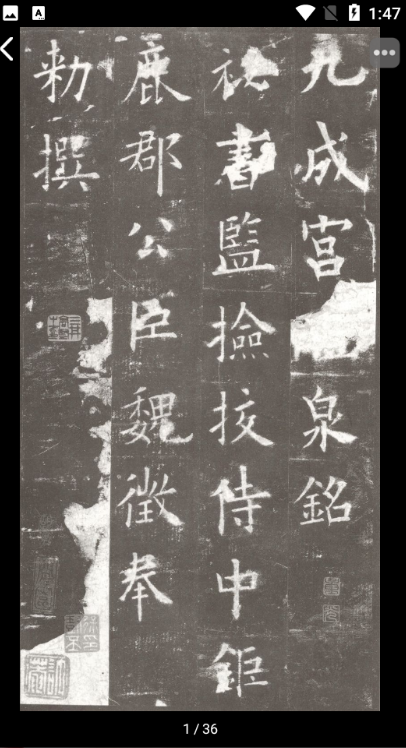 1:47
九成宮泉銘
祕書監撿挍侍中鉅
鹿郡公臣魏徵奉
勑撰
1 / 36